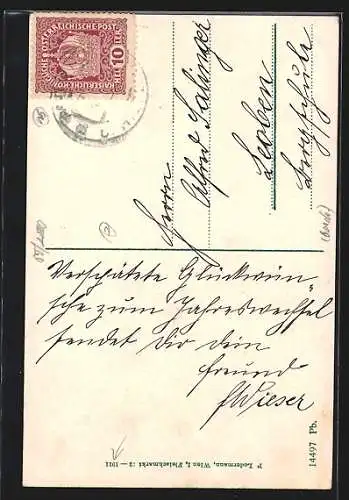 KAISERLICHE KÖNIGLICHE ÖSTERREICHISCHE POST
10
HELLER
Herrn
Alfred Salinger
Leoben
Verspätete Glückwün„
sche zum Jahreswechsel
sendet Dir dein
Freund
Wieser
P. Ledermann, Wien I, Fleischmarkt 12 — 1911
14497 Pb.